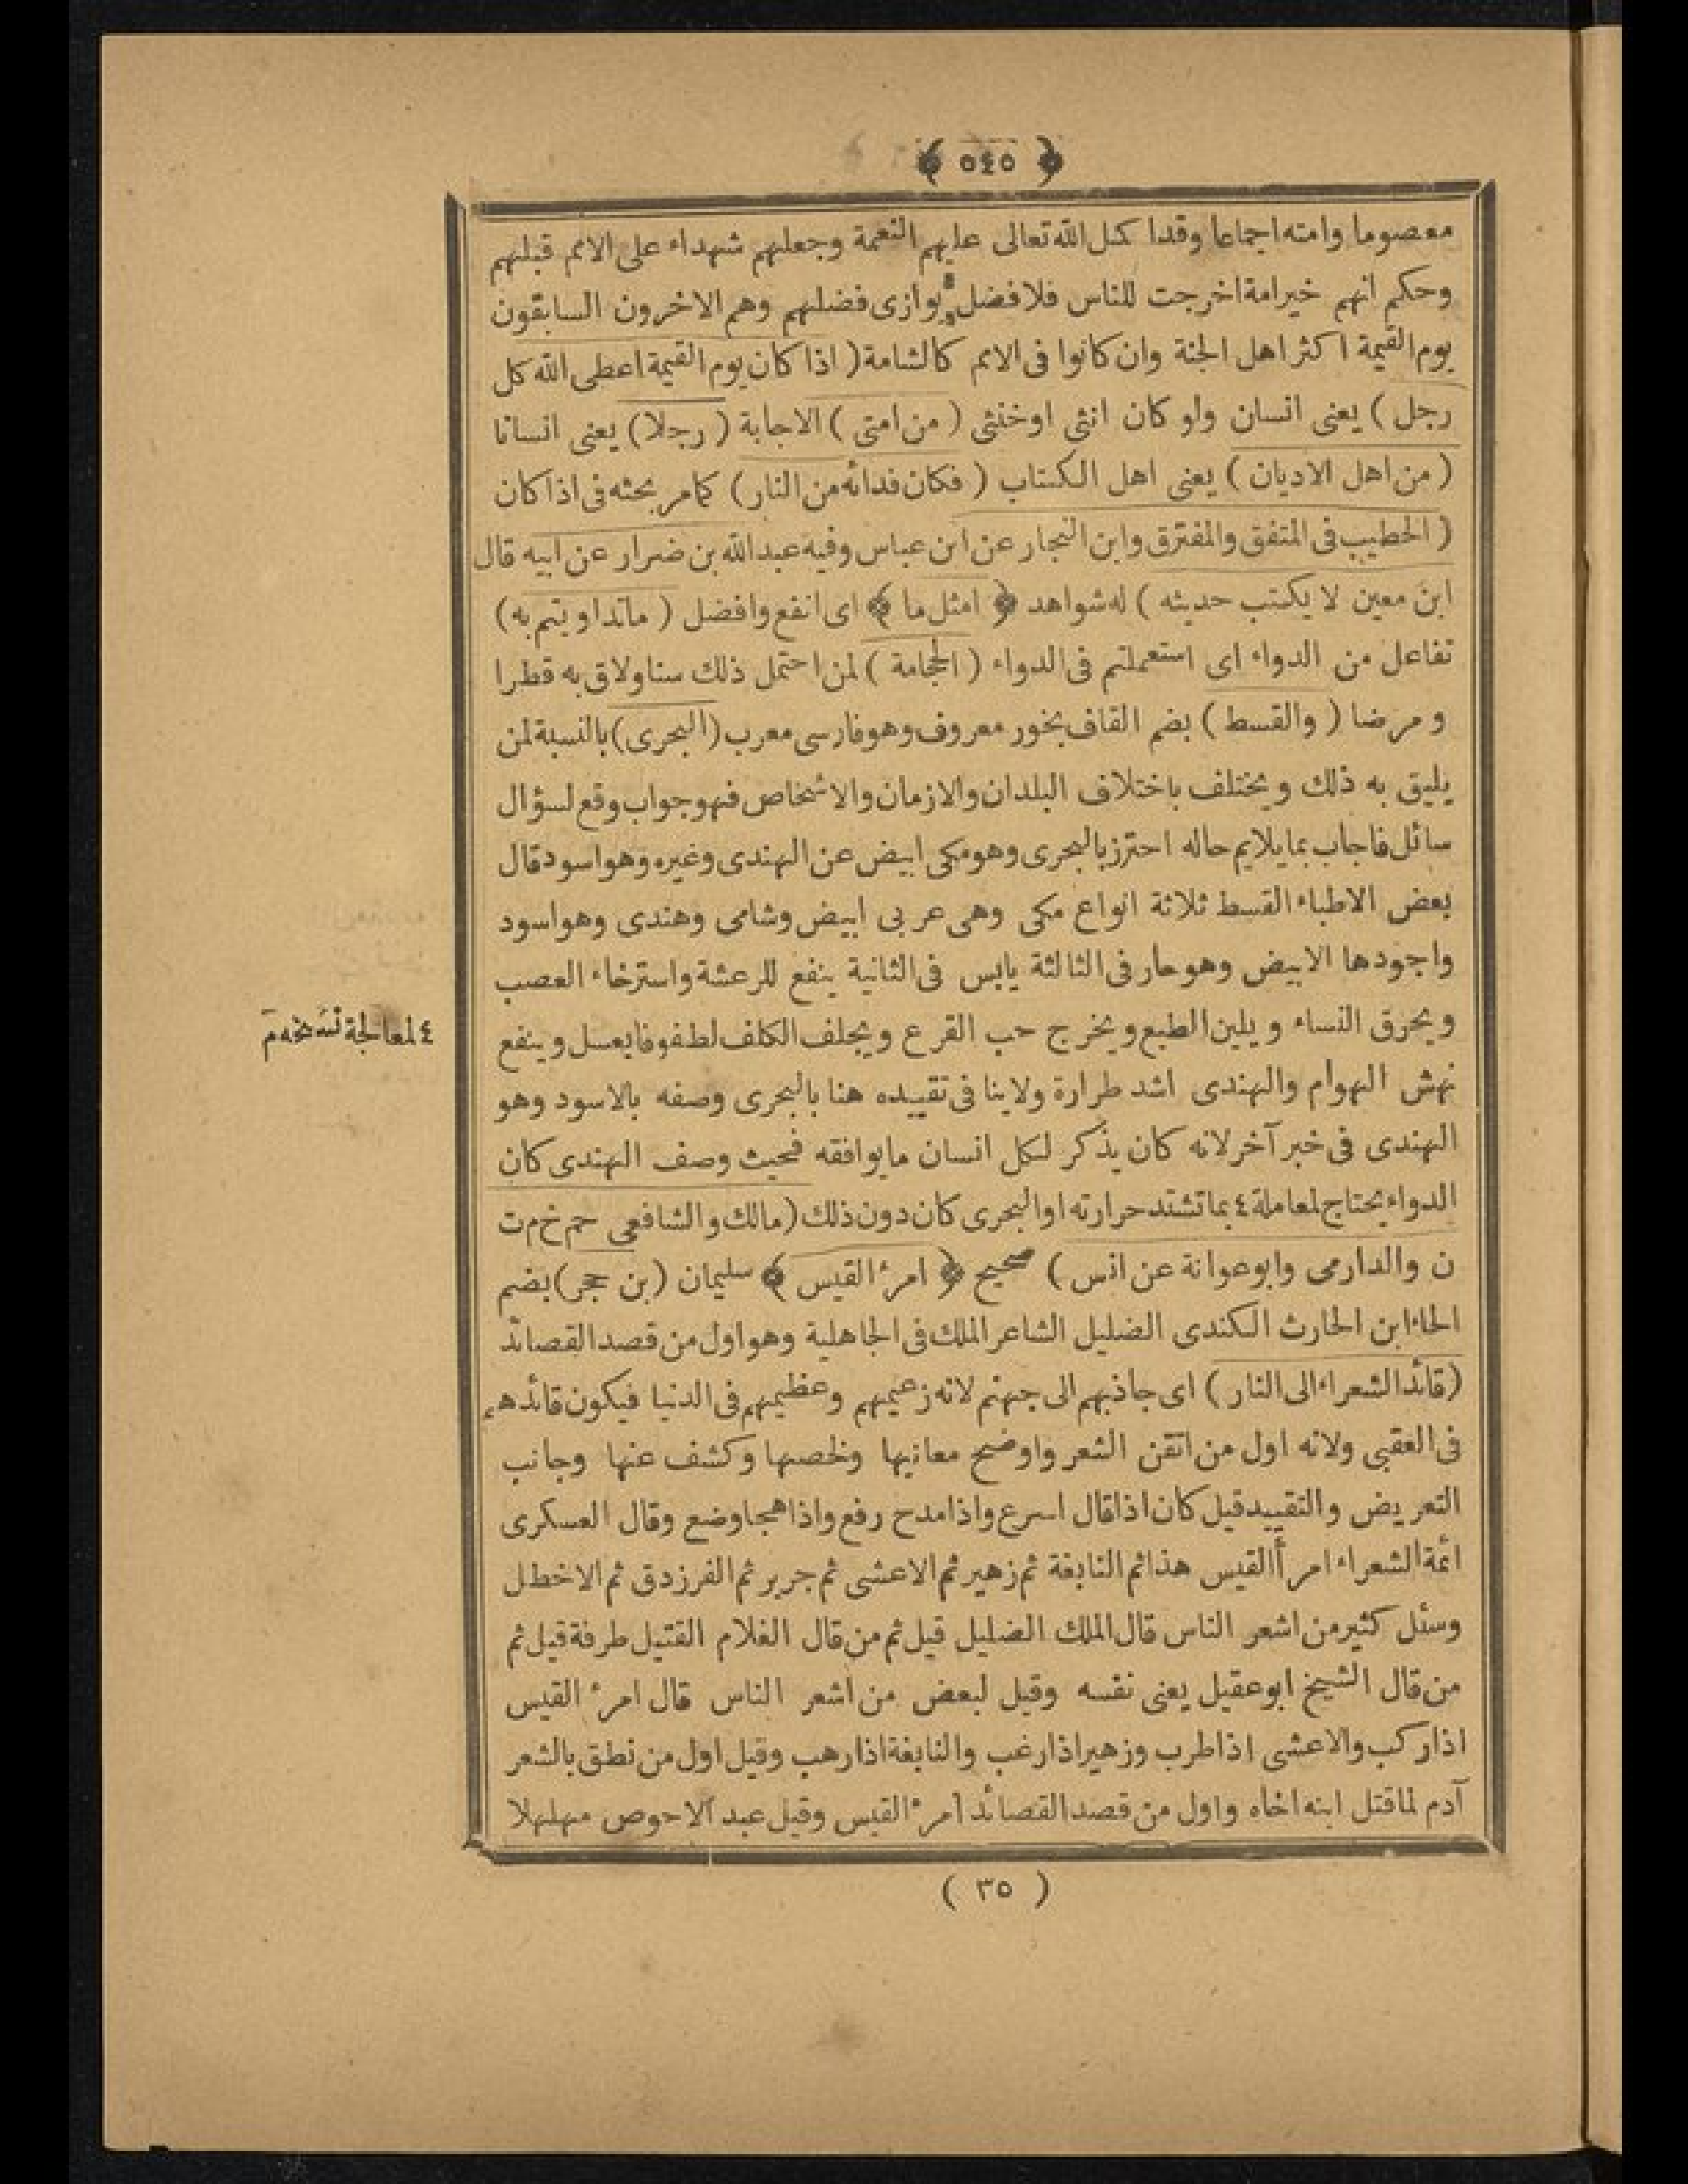 ﴿ ٥٤٥ ﴾
معصوما وامته اجماعا وقد اكمل الله تعالى عليهم النعمة وجعلهم شهداء على الامم قبلهم
وحكم انهم خير امة اخرجت للناس فلا فضل يوازى فضلهم وهم الاخرون السابقون
يوم القيمة اكثر اهل الجنة وان كانوا فى الامم كالشامة ( اذا كان يوم القيمة اعطى الله كل
رجل ) يعنى انسان ولو كان انثى او خنثى ( من امتى ) الاجابة ( رجلا ) يعنى انسانا
( من اهل الاديان ) يعنى اهل الكتاب ( فكان فدائه من النار ) كما مر بحثه فى اذا كان
( الخطيب فى المتفق والمفترق وابن النجار عن ابن عباس وفيه عبد الله بن ضرار عن ابيه قال
ابن معين لا يكتب حديثه ) له شواهد ﴿ امثل ما ﴾ اى انفع وافضل ( ما تداويتم به )
تفاعل من الدواء اى استعملتم فى الدواء ( الحجامة ) لمن احتمل ذلك سنا ولاق به قطرا
ومرضا ( والقسط ) بضم القاف بخور معروف وهو فارسى معرب ( البحرى ) بالنسبة لمن
يليق به ذلك ويختلف باختلاف البلدان والازمان والاشخاص فهو جواب وقع لسؤال
سائل فاجاب بما يلايم حاله احترز بالبحرى وهو مكى ابيض عن الهندى وغيره وهو اسود قال
بعض الاطباء القسط ثلاثة انواع مكى وهى عربى ابيض وشامى وهندى وهو اسود
واجودها الابيض وهو حار فى الثالثة يابس فى الثانية ينفع للرعشة واسترخاء العصب
ويحرق النساء ويلين الطبع ويخرج حب القرع ويجلف الكلف لطفوفا بعسل وينفع
نهش الهوام والهندى اشد طرارة ولاينا فى تقييده هنا بالبحرى وصفه بالاسود وهو
الهندى فى خبر آخر لانه كان يذكر لكل انسان ما يوافقه فحيث وصف الهندى كان
الدواء يحتاج لمعاملة ٤ بما تشتد حرارته او البحرى كان دون ذلك ( مالك والشافعى حم خ م ت
ن والدارمى وابو عوانة عن انس ) صحيح ﴿ امرء القيس ﴾ سليمان ( بن حجر ) بضم
الحاء ابن الحارث الكندى الضليل الشاعر الملك فى الجاهلية وهو اول من قصد القصائد
( قائد الشعراء الى النار ) اى جاذبهم الى جهنم لانه زعيمهم وعظيمهم فى الدنيا فيكون قائدهم
فى العقبى ولانه اول من اتقن الشعر واوضح معانيها ولخصها وكشف عنها وجانب
التعريض والتقييد قيل كان اذا قال اسرع واذا مدح رفع واذا هجا وضع وقال العسكرى
ائمة الشعراء امرأ القيس هذا ثم النابغة ثم زهير ثم الاعشى ثم جرير ثم الفرزدق ثم الاخطل
وسئل كثير من اشعر الناس قال الملك الضليل قيل ثم من قال الغلام القتيل طرفة قيل ثم
من قال الشيخ ابو عقيل يعنى نفسه وقيل لبعض من اشعر الناس قال امرء القيس
اذا ركب والاعشى اذا طرب وزهير اذا رغب والنابغة اذا رهب وقيل اول من نطق بالشعر
آدم لما قتل ابنه اخاه واول من قصد القصائد امرء القيس وقيل عبد الاحوص مهلهلا
٤ لمعالجة نسخه م
( ٣٥ )